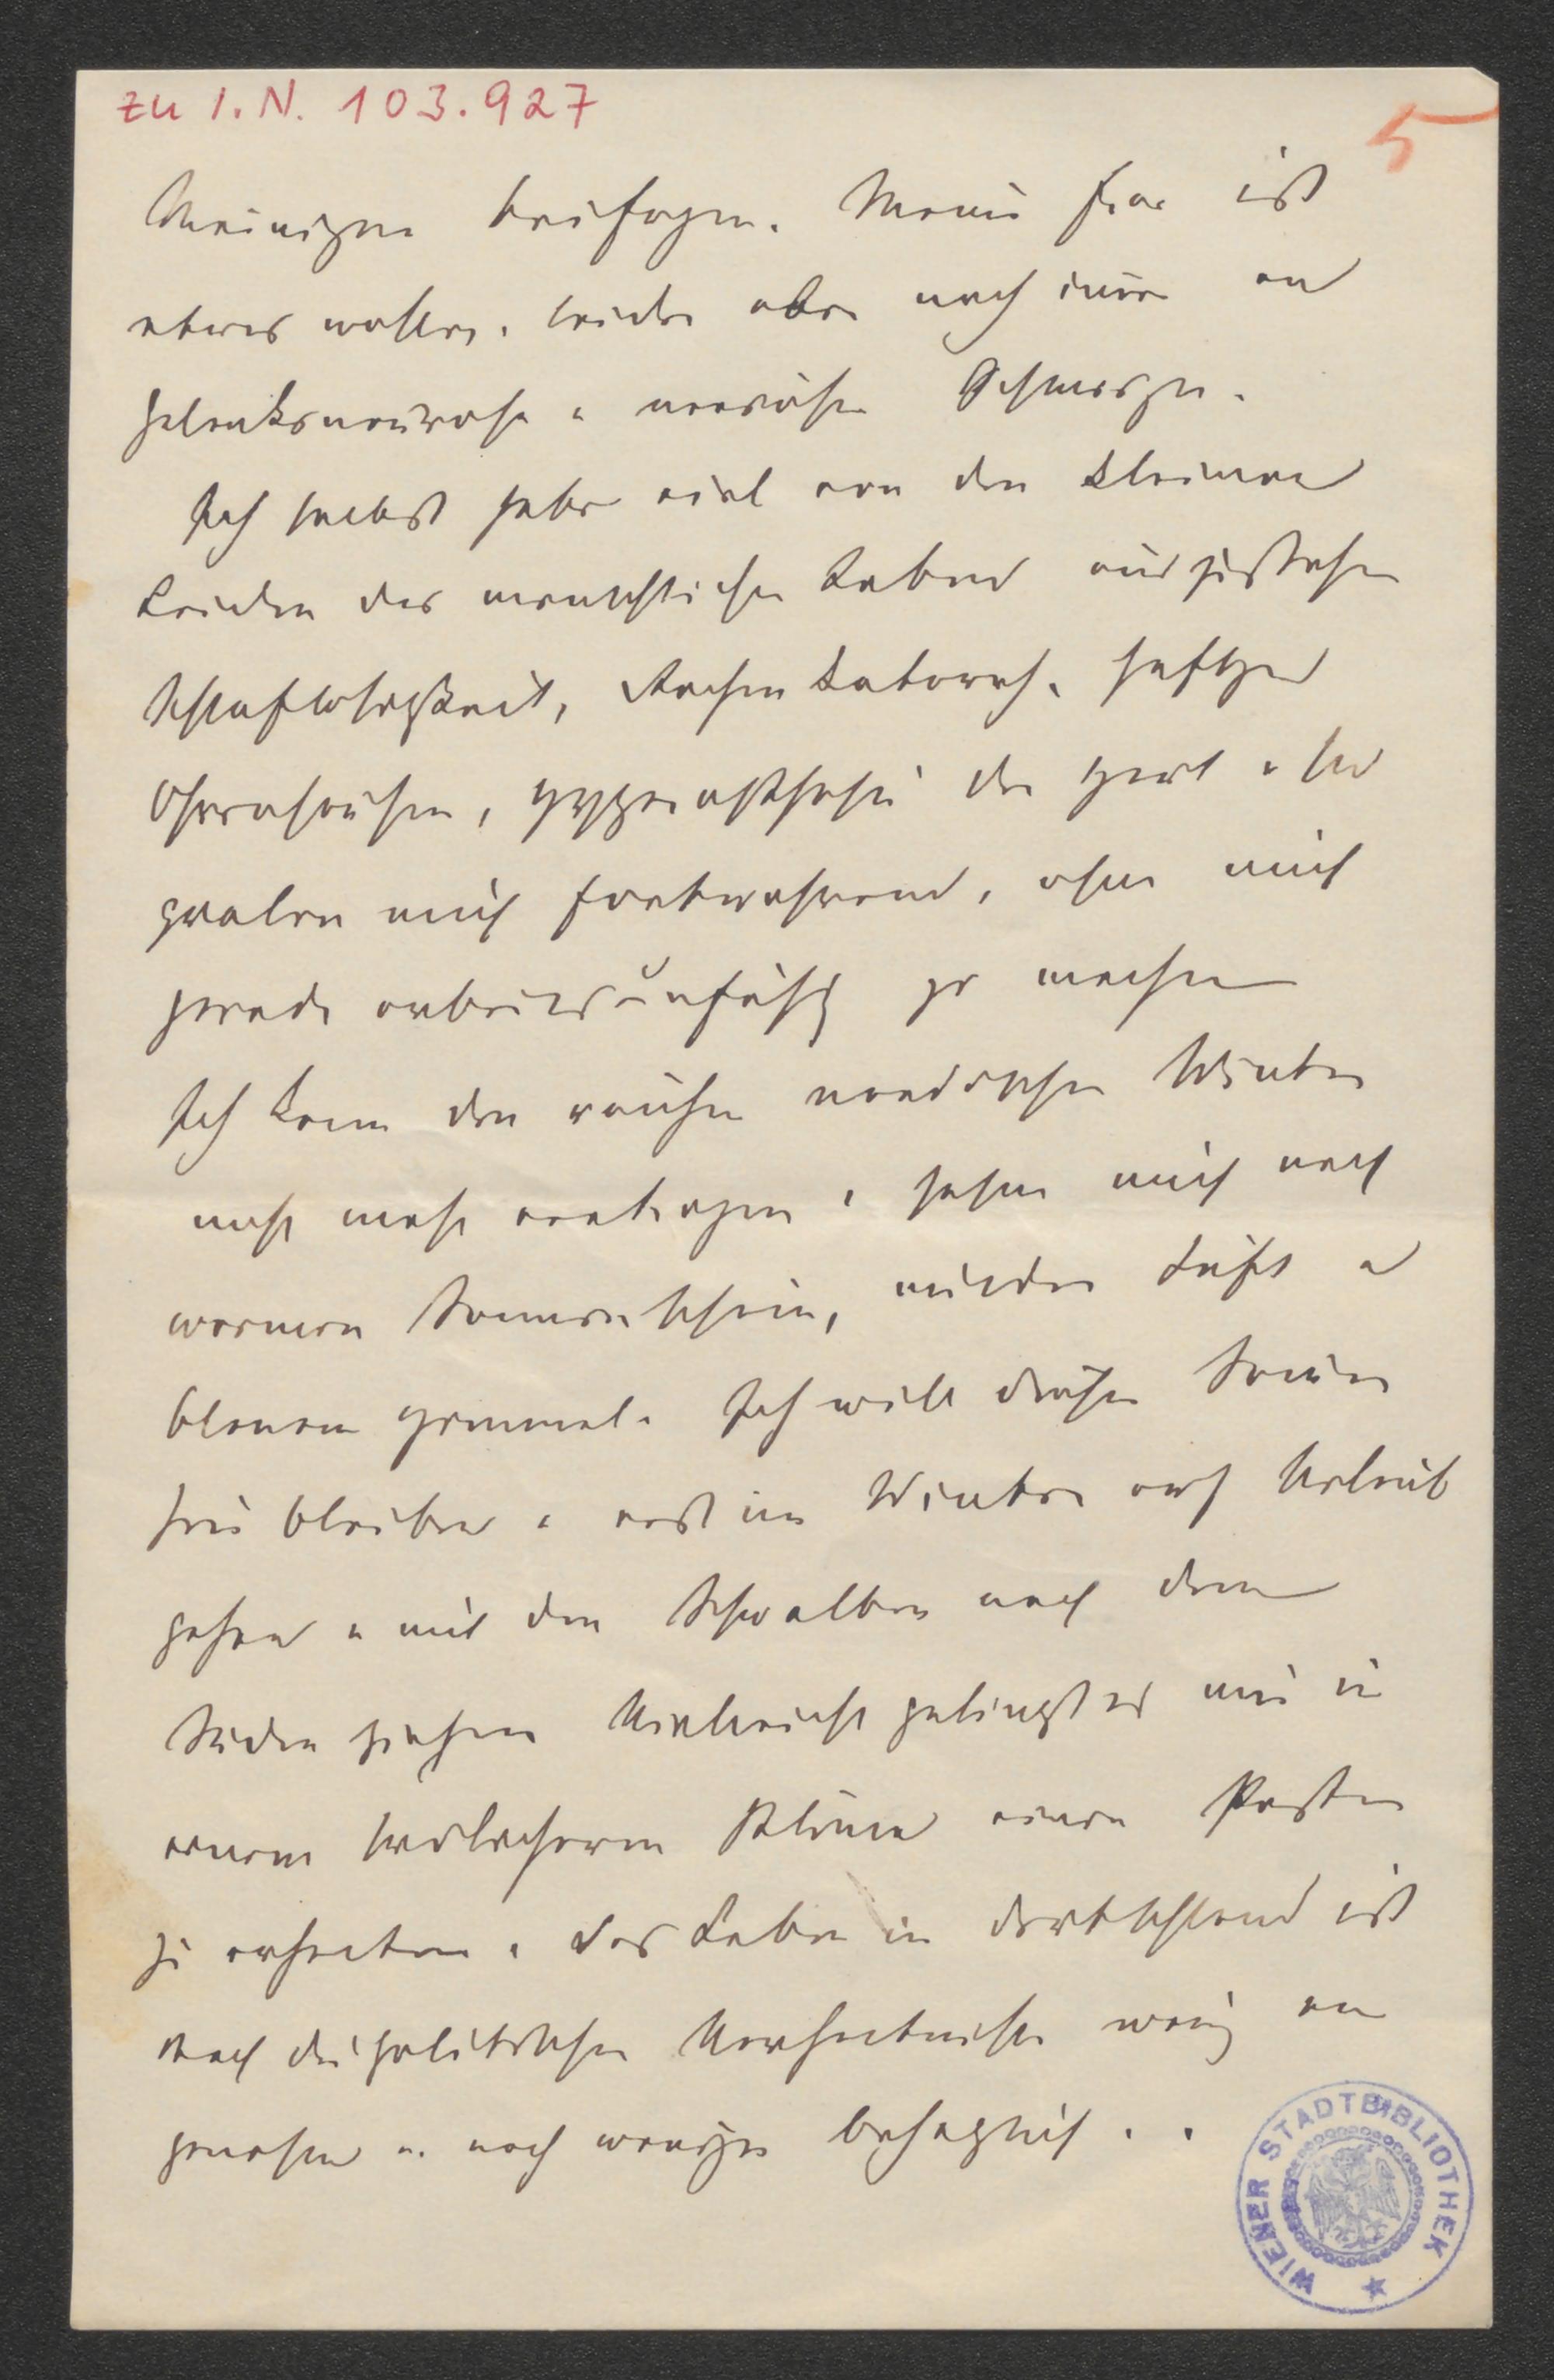 zu I.N. 103.927
5
Meinigen beifügen. Meine Frau ist
etwas wohler, leidet aber noch immer an
Gelenksneurose u nervösen Schmerzen.
Ich selbst habe viel von den kleinen
Leiden des menschlichen Lebens auszustehen
Schlaflosigkeit, Rachenkatarrh, heftiges
Ohrensausen, Hyperästhesie der Haut u
quälen mich fortwährend, ohne mich
gerade arbeitsunfähig zu machen
Ich kann den rauhen nordischen Winter
nicht mehr vertragen u sehne mich nach
warmem Sonnenschein, milder Luft u
blauem Himmel. Ich will diesen Sommer
hier bleiben u erst im Winter auf Urlaub
gehen u mit den Schwalben nach dem
Süden ziehen Vielleicht gelingt es mir in
einem südlicheren Klima einen Posten
zu erhalten. Das Leben in Deutschland ist
durch die politischen Verhältnisse wenig an
genehm u. noch weniger behaglich..
WIENER STADTBIBLIOTHEK